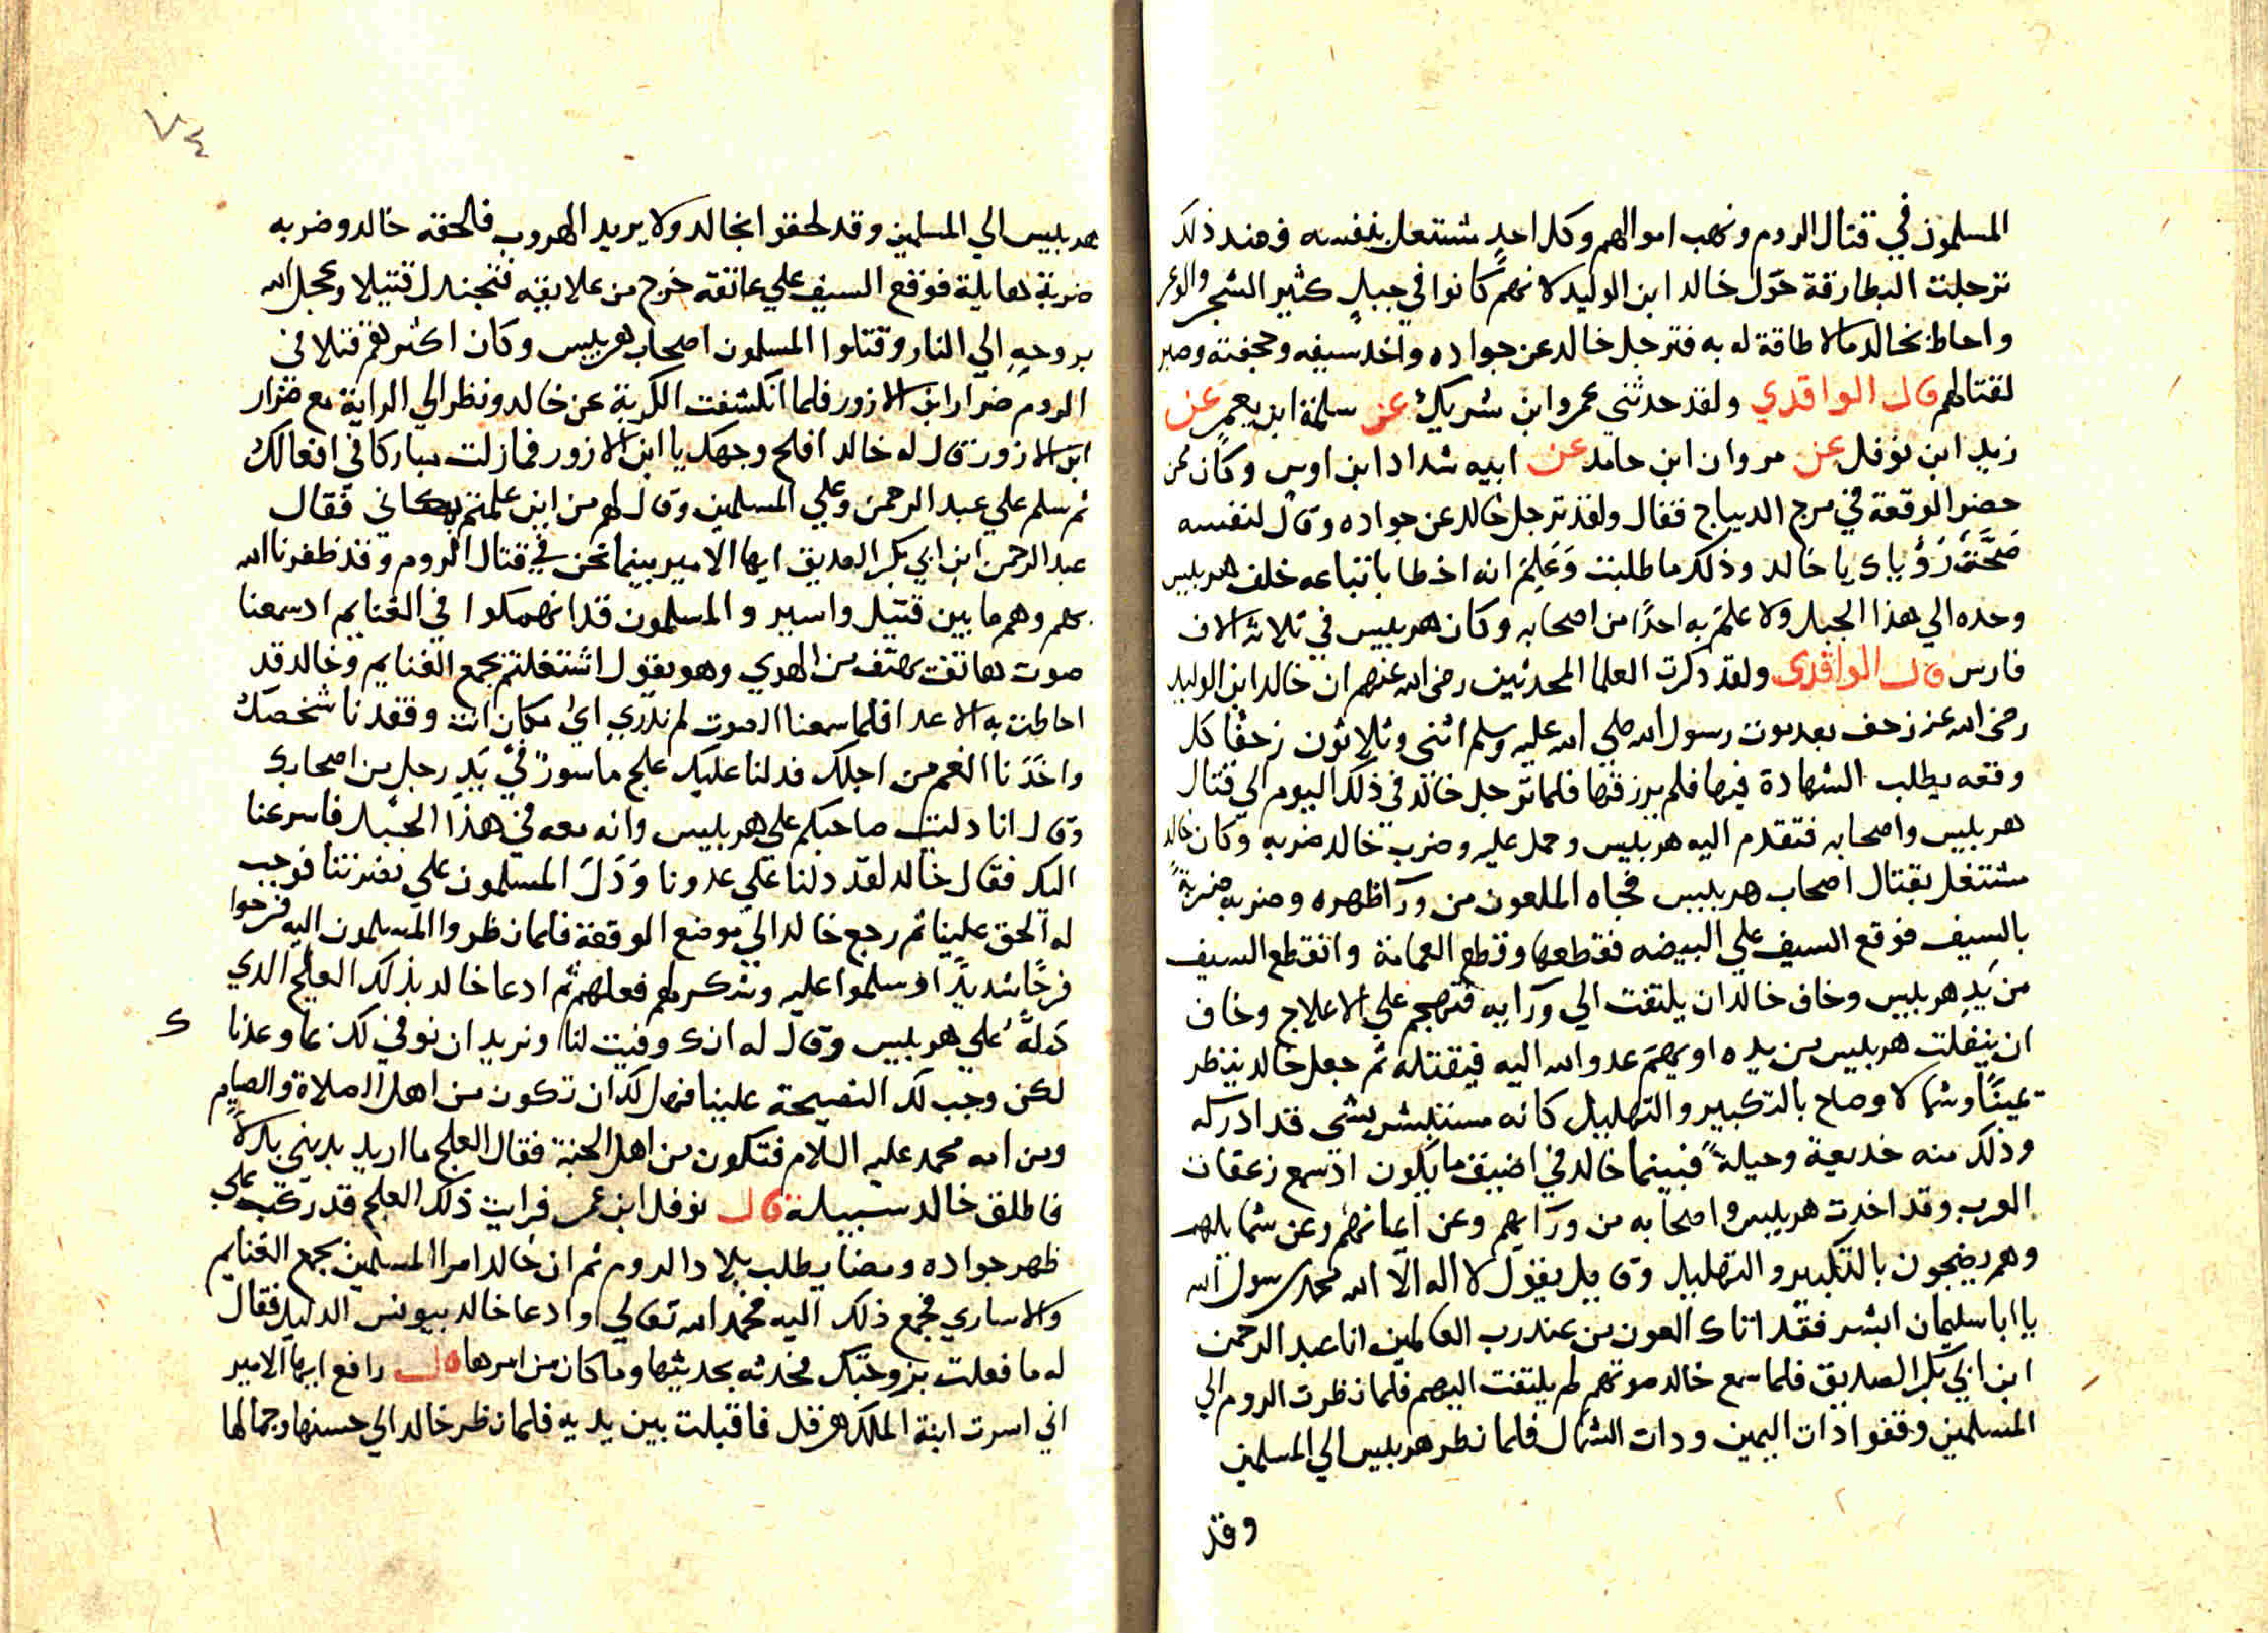 المسلمون في قتال الروم ونهب اموالهم وكل احدٍ مشتغل بنفسه فعند ذلك
ترجلت البطارقة حَوْل خالد ابن الوليد لانهم كانوا في جبلٍ كثير الشجر والوعر
واحاط بخالد مالا طاقة له به فترجل خالد عن جواده واخد سيفه وحجفته وصبر
لقتالهم قال الواقدي ولقد حدثني عمرو ابن شريك عن سلمة ابن يعمر عن
زيد ابن نوفل عن مروان ابن حامد عن ابيه شداد ابن اوس وكان ممن
حضر الوقعة في مرج الديباج فقال ولقد ترجل خالد عن جواده وقال لنفسه
صَحَّتْ رُؤْياي يا خالد وذلك ما طلبت وَعَلِمَ انه اخطا باتباعه خلف هربيس
وحده الي هذا الجبل ولا علم به احدًا من اصحابه وكان هربيس في ثلاثه الاف
فارس قال الواقدي ولقد ذكرت العلما المحدثين رضي الله عنهم ان خالد ابن الوليد
رضي الله عنه زحف بعد موت رسول الله صلي الله عليه وسلم اثني وثلاثون زحفًا كل
وقعه يطلب الشهادة فيها فلم يرزقها فلما ترجل خالد في ذلك اليوم الي قتال
هربيس واصحابه فتقدم اليه هربيس وحمل عليه وضرب خالد ضربه وكان خالد
مشتغل بقتال اصحاب هربيس فجاه الملعون من ورآ ظهره وضربه ضربةً
بالسيف فوقع السيف علي البيضه فقطعها وقطع العمامة وانقطع السيف
من يَدِ هربيس وخاف خالد ان يلتفت الي ورآيه فتهجم علي الاعلاج وخاف
ان ينفلت هربيس من يده او يهم عدو الله اليه فيقتله ثم جعل خالد ينظر
يمينًا وشمالا وصاح بالتكبير والتهليل كانه مستبشر بشي قد ادركه
وذلك منه خديعة وحيلةً فبينما خالد في اضيق ما يكون اذ سمع زعقات
العرب وقد اخدت هربيس واصحابه من ورآيهم وعن ايمانهم وعن شمايلهم
وهم يضجون بالتكبير والتهليل وقايل يقول لا اله الّا الله محمد رسول الله
يا ابا سليمان ابشر فقد اتاك العون من عند رب العالمين انا عبد الرحمن
ابن ابي بكر الصديق فلما سمع خالد صوتهم لم يلتفت اليهم فلما نظرت الروم الي
المسلمين وقفوا ذات اليمين ودات الشمال فلما نظر هربيس الي المسلمين
وقد
٧٤
هربيس الي المسلمين وقد لحقوا بخالد ولا يريد الهروب فالحقه خالد وضربه
ضربة هايلة فوقع السيف علي عاتقه خرج من علايقه فتجندل قتيلا وعجل الله
بروحِهِ الي النار وقتلوا المسلمون اصحاب هربيس وكان اكثرهم قتلا في
الروم ضرار ابن الازور فلما انكشفت الكربة عن خالد ونظر الي الراية مع ضرار
ابن الازور قال له خالد افلح وجهك يا ابن الازور فما زلت مباركا في افعالك
ثم سلم علي عبد الرحمن وعلي المسلمين وقال لهم من اين علمتم بمكاني فقال
عبد الرحمن ابن ابي بكر الصديق ايها الامير بينما نحن في قتال الروم وقد ظفرنا الله
بهم وهم ما بين قتيل واسير والمسلمون قد انهمكوا في الغنايم اد سمعنا
صوت هاتف يهتف من الهوي وهو يقول اشتغلتم بجمع الغنايم وخالد قد
احاطت به الاعدا فلما سمعنا الصوت لم ندري ايُ مكان انت وفقدنا شخصك
واخَدَنا الغم من اجلك فدلنا عليك علج ماسورً في يَدِ رجل من اصحابك
وقال انا دليت صاحبكم علي هربيس وانه معه في هذا الجبل فاسرعنا
اليك فقال خالد لقد دلنا علي عدونا وَدَلَ المسلمون علي نصرتنا فوجب
له الحق علينا ثم رجع خالد الي موضع الوقعة فلما نظروا المسلمون اليه فرحوا
فرحًا شديدًا وسلموا عليه وشكرهم فعلهم ثم ادعا خالد بذلك العلج الدي
دَلهُ علي هربيس وقال له انك وفيت لنا ونريد ان نوفي لك بما وعدنا
ك
لكن وجب لك النصيحة علينا فهل لك ان تكون من اهل الصلاة والصيام
ومن امه محمد عليه السلام فتكون من اهل الجنة فقال العلج ما اريد بديني بدلاً
فاطلق خالد سبيله قال نوفل ابن عمر فرايت ذلك العلج قد ركب علي
ظهر جواده ومضا يطلب بلاد الروم ثم ان خالد امر المسلمين بجمع الغنايم
والاساري فجمع ذلك اليه فحمد الله تعالي وادعا خالد بيونس الدليل فقال
له ما فعلت بزوجتك فحدثه بحديثها وما كان من امرها قال رافع ايها الامير
اني اسرت ابنة الملك هرقل فاقبلت بين يديه فلما نظر خالد الي حسنها وجمالها